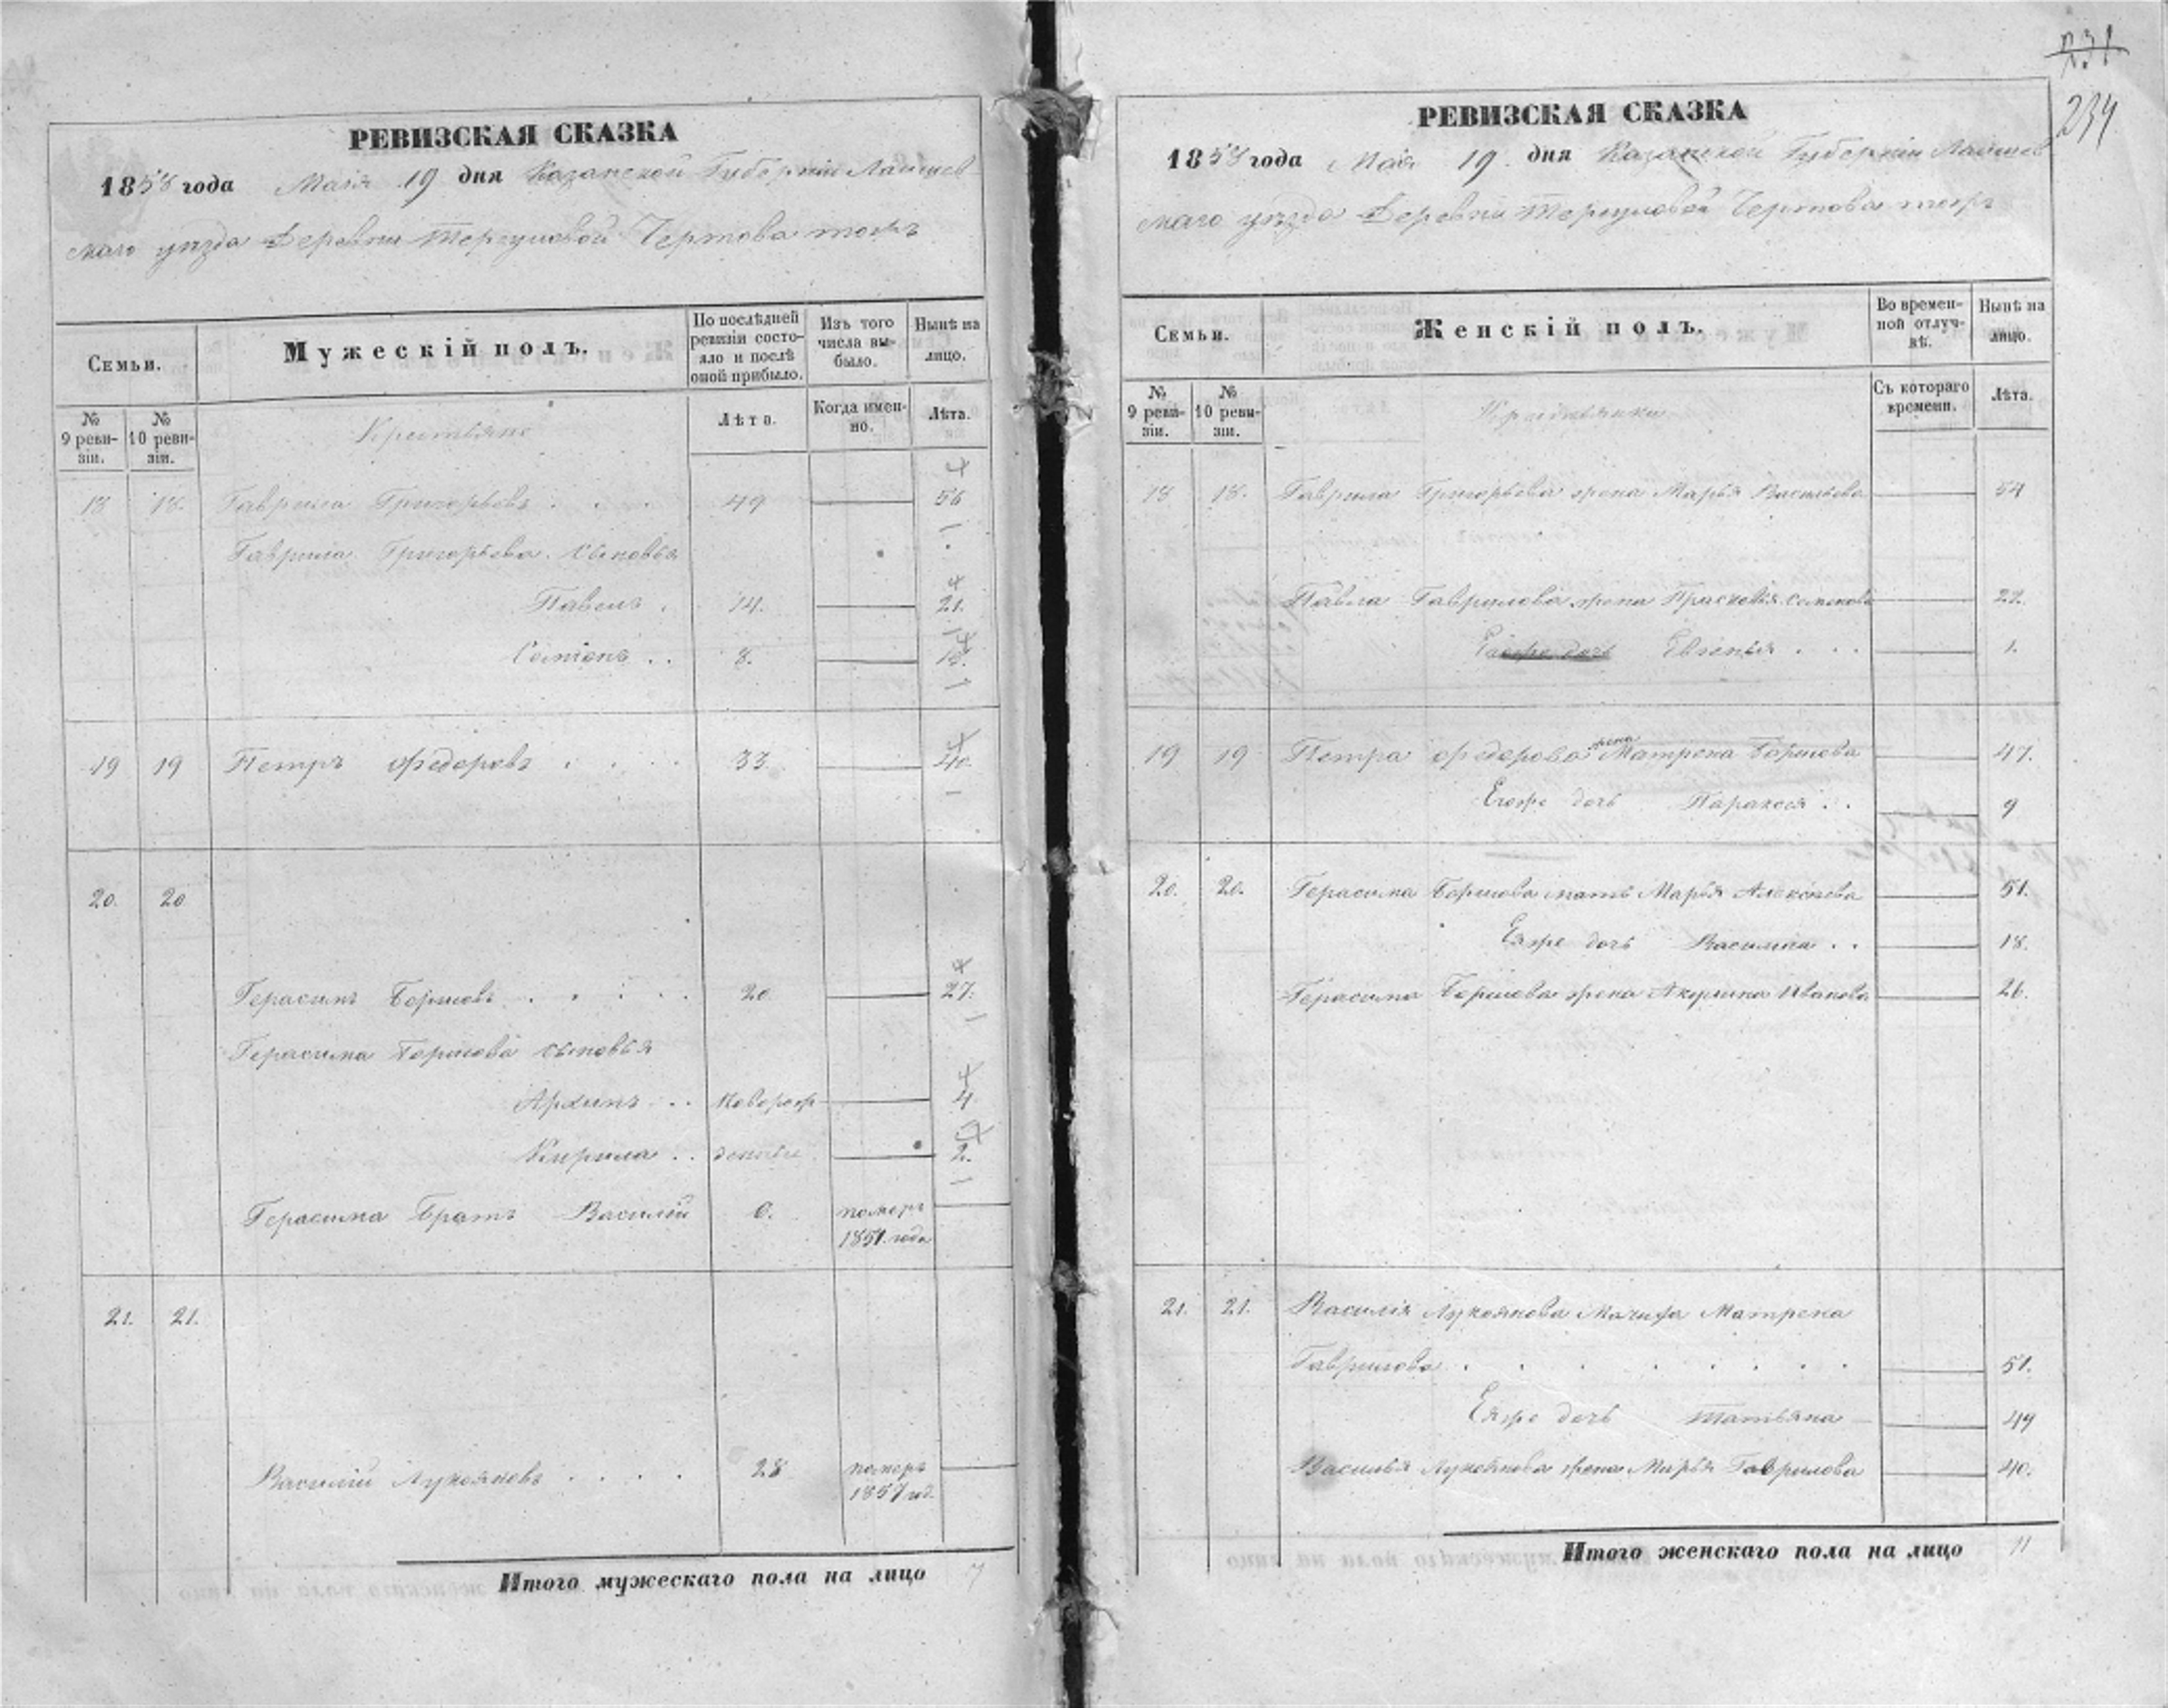 РЕВИЗСКАЯ СКАЗКА
1858 года Мая 19 дня Казанской Губерніи Лаишев
скаго уѣзда Деревни Чертова тожъ
Семьи.
Мужескій полъ.
По послѣдней ревизіи состояло и послѣ оной прибыло.
Изъ того числа выбыло.
Нынѣ на лицо.
№ 9 ревизіи.
№ 10 ревизіи.
Крестьяне
Лѣта.
Когда именно.
Лѣта.
18 18. Гаврила Григорьевъ 49 56
Гаврила Григорьева сыновья
Павелъ 14. 21.
Семенъ 8. 15.
19 19 Петръ Федоровъ 33 40.
20. 20
Герасимъ Борисовъ 20 27.
Герасима Борисова сыновья
Архипъ новорож 4
Кирила денные 2.
Герасима Братъ Василій 6. померъ
1851 года
21. 21.
Василій Лукояновъ 28 померъ
1857 год.
Итого мужескаго пола на лицо 7
231
234
РЕВИЗСКАЯ СКАЗКА
1858 года Мая 19 дня Казанской Губерніи Лаишев
скаго уѣзда Деревни Чертова тожъ
Семьи.
Женскій полъ.
Во временной отлучкѣ.
Нынѣ на лицо.
№ 9 ревизіи.
№ 10 ревизіи.
Крестьянки
Съ котораго времени.
Лѣта.
18 18. Гаврила Григорьева жена Марья Васильева 54
Павла Гаврилова жена Прасковья Семенова 22.
Евгенья 1.
19 19 Петра Федорова жена Матрена Борисова 47.
Еяже дочь Параксея 9
20. 20. Герасима Борисова мать Марья Алексѣева 51.
Еяже дочь Василиса 18.
Герасима Борисова жена Акулина Иванова 26.
21. 21. Василія Лукоянова Мачиха Матрена
Гаврилова 51.
Еяже дочь Татьяна 49
Василья Лукоянова жена Марья Гаврилова 40.
Итого женскаго пола на лицо 11